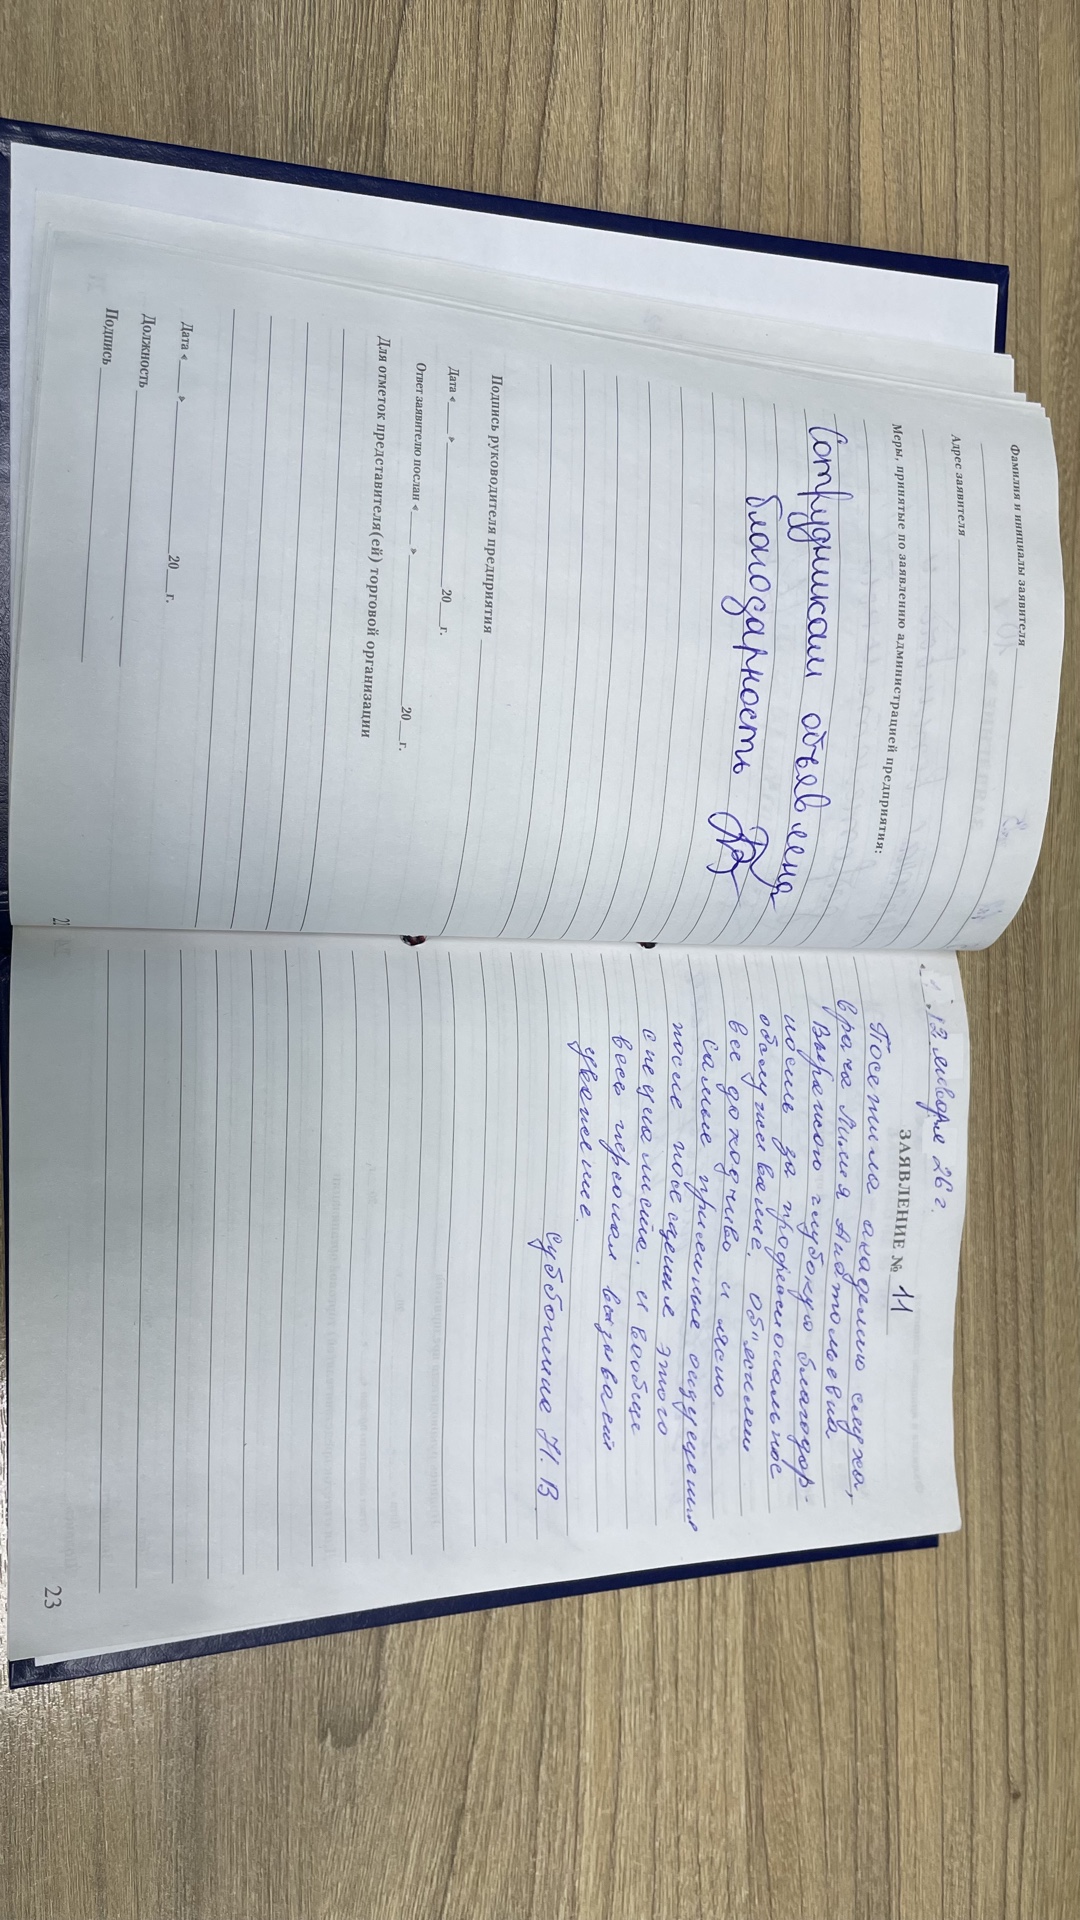 Фамилия и инициалы заявителя
Адрес заявителя
Меры, принятые по заявлению администрацией предприятия:
Сотрудникам объявлена
благодарность
Подпись руководителя предприятия
Дата «___» ___ 20___г.
Ответ заявителю послан «___» ___ 20___г.
Для отметок представителя(ей) торговой организации
Дата «___» ___ 20___г.
Должность
Подпись
13 января 26 г.
ЗАЯВЛЕНИЕ № 11
Посетила академию слуха,
врача Лилия Анатольевна
Выражаю глубокую благодар-
ность за профессиональное
обслуживание, об"яснили
все доходчиво и ясно.
Самые приятные ощущения
после посещения этого
специалиста. и вообще
весь персонал вызывает
уважение.
Субботина Н. В
23